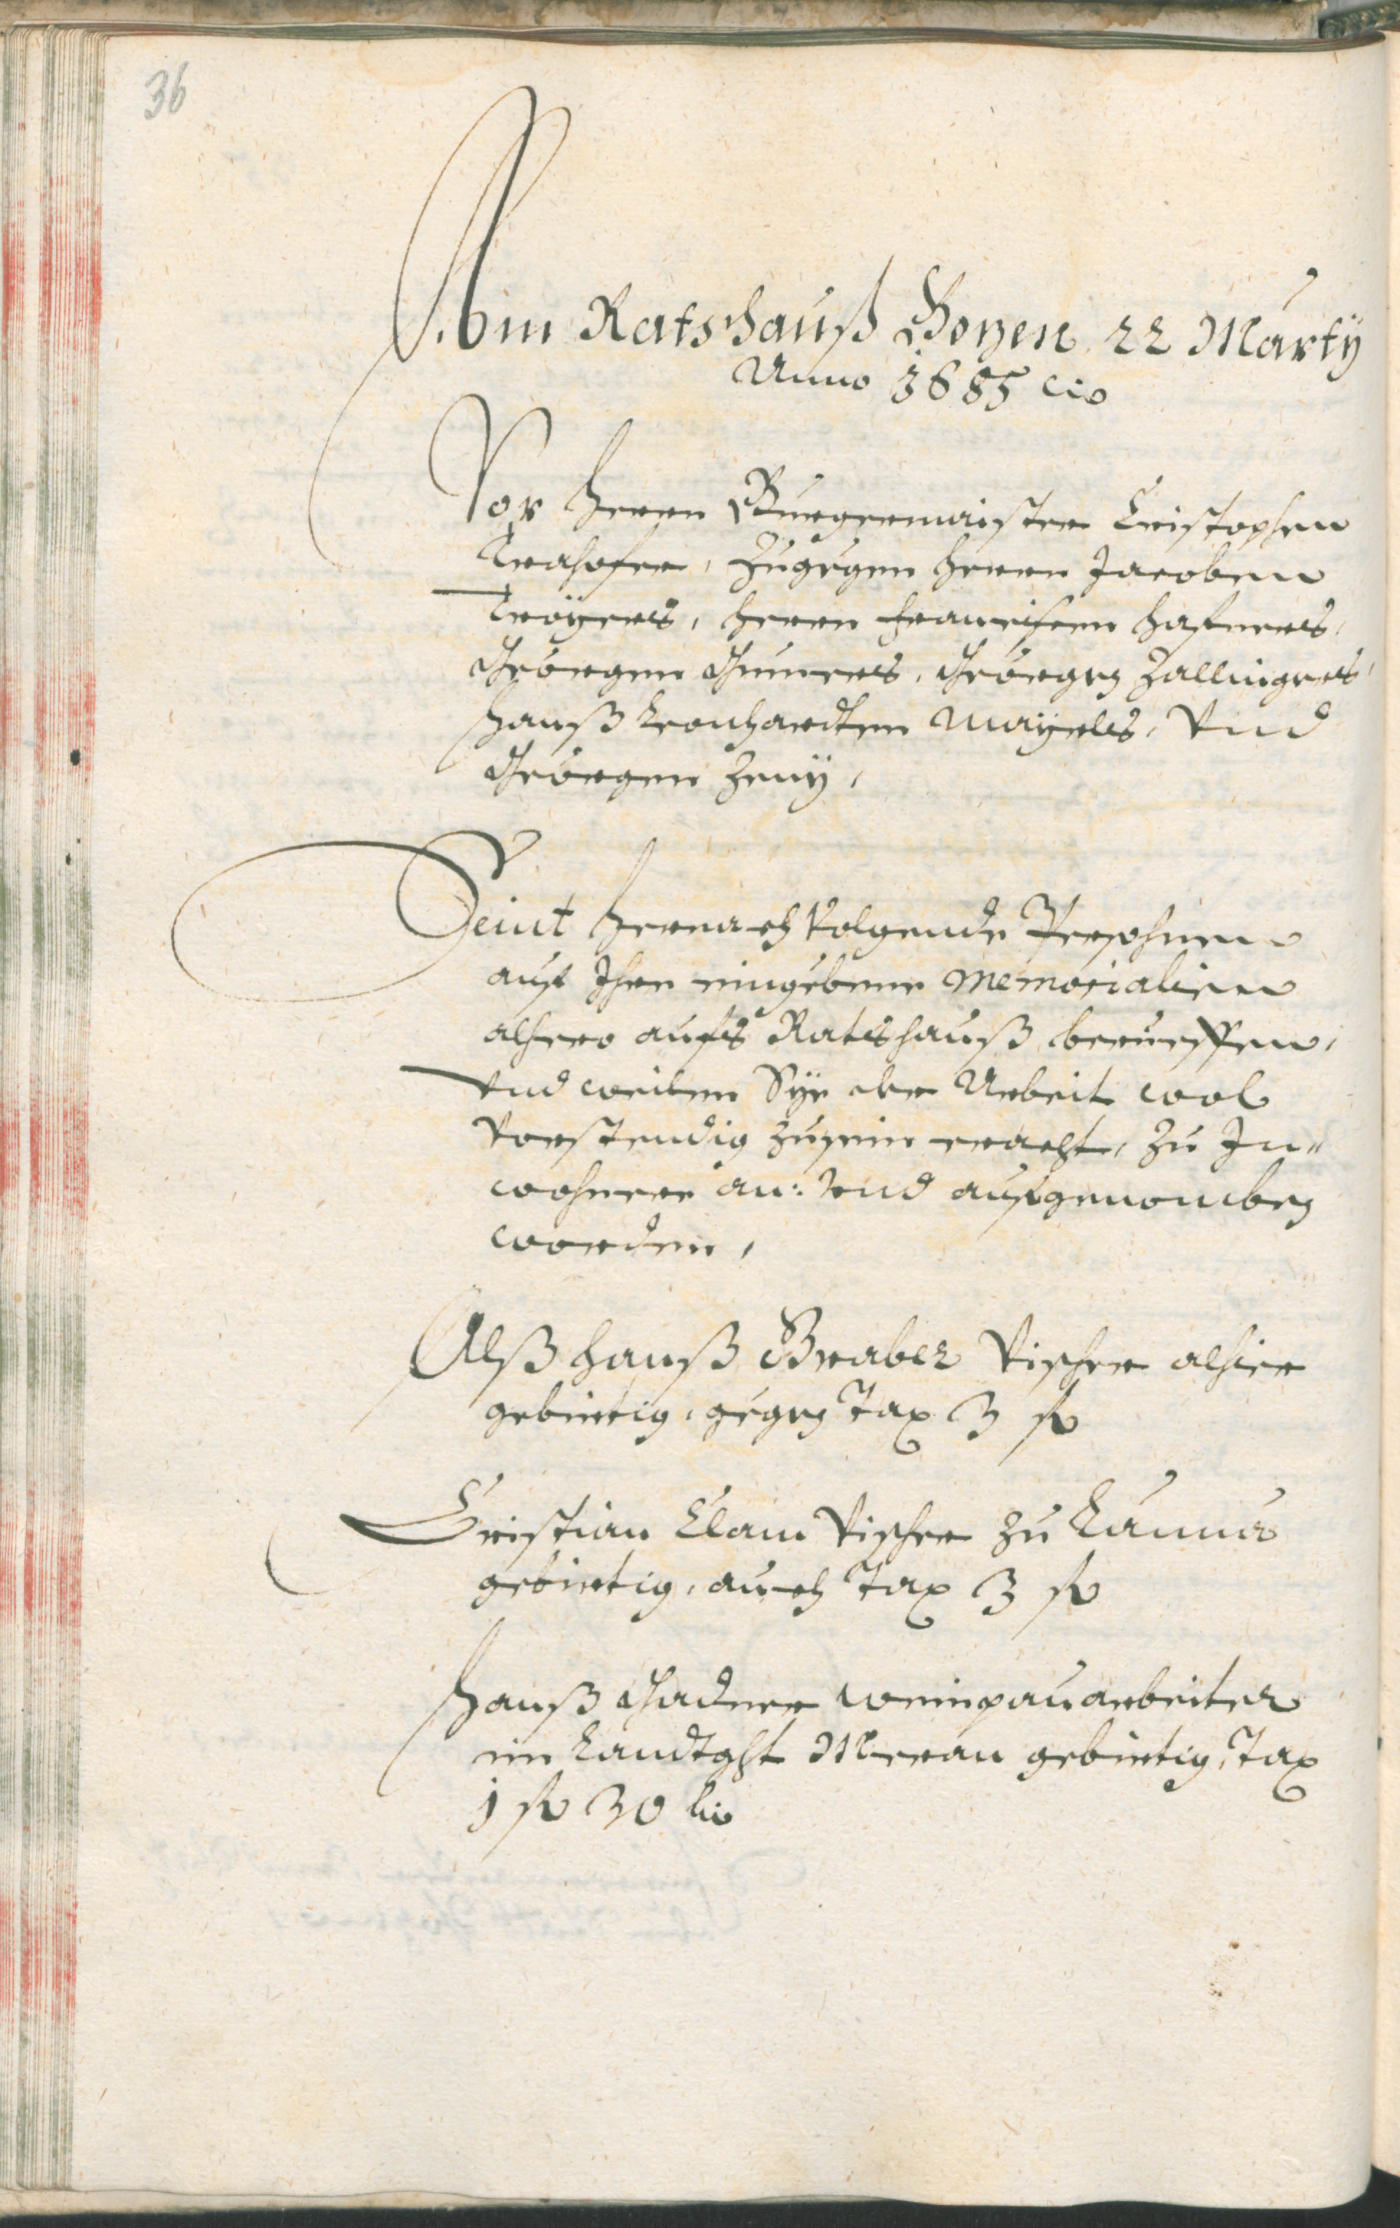 36
Am Ratshauß Bozen 22 Marty
Anno 1685 etc
Vor Herrn Burgermaister Cristophen
Trahofer, Zugegen Herrn Jacoben
Troyers, Herrn Franciscen Hafners,
Geörgen Gumers, Geörgen Zallingers,
Hanß Leonhardten Mayrls, Vnd
Geörgen Zeny,
Seint hernach Volgende Persohnen
auf Ihr eingebene Memorialien
alhero aufs Ratshauß berueffen,
Vnd weilen Sye der Arbeit wol
Vorstendig zusein eracht, zu In-
wohner an: Vnd aufgenomben
worden,
Alß Hanß Graber Vischer alhier
gebirtig, gegen Tax 3 fl
Cristian Clam Vischer zu Launa
gebirtig, auch Tax 3 fl
Hanß Gadner Weinpauarbeiter
im Landtght Meran gebirtig, Tax
1 fl 30 kr